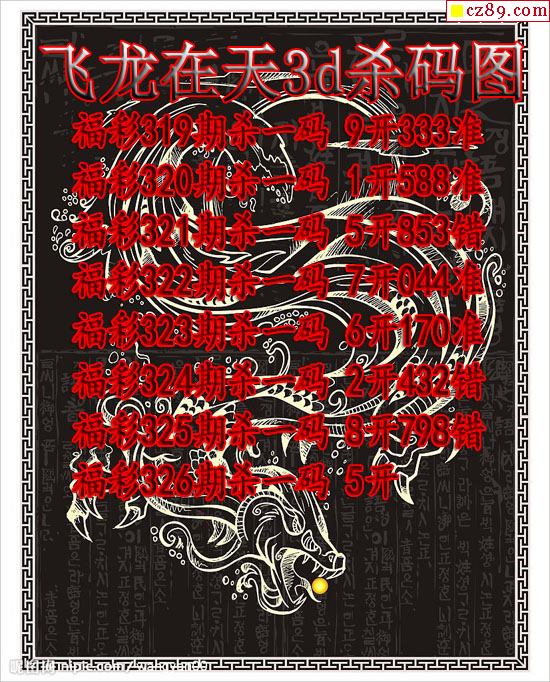 cz89.com
飞龙在天3d杀码图
福彩319期杀一码 9开333准
福彩320期杀一码 1开588准
福彩321期杀一码 5开853错
福彩322期杀一码 7开044准
福彩323期杀一码 6开170准
福彩324期杀一码 2开432错
福彩325期杀一码 8开798错
福彩326期杀一码 5开